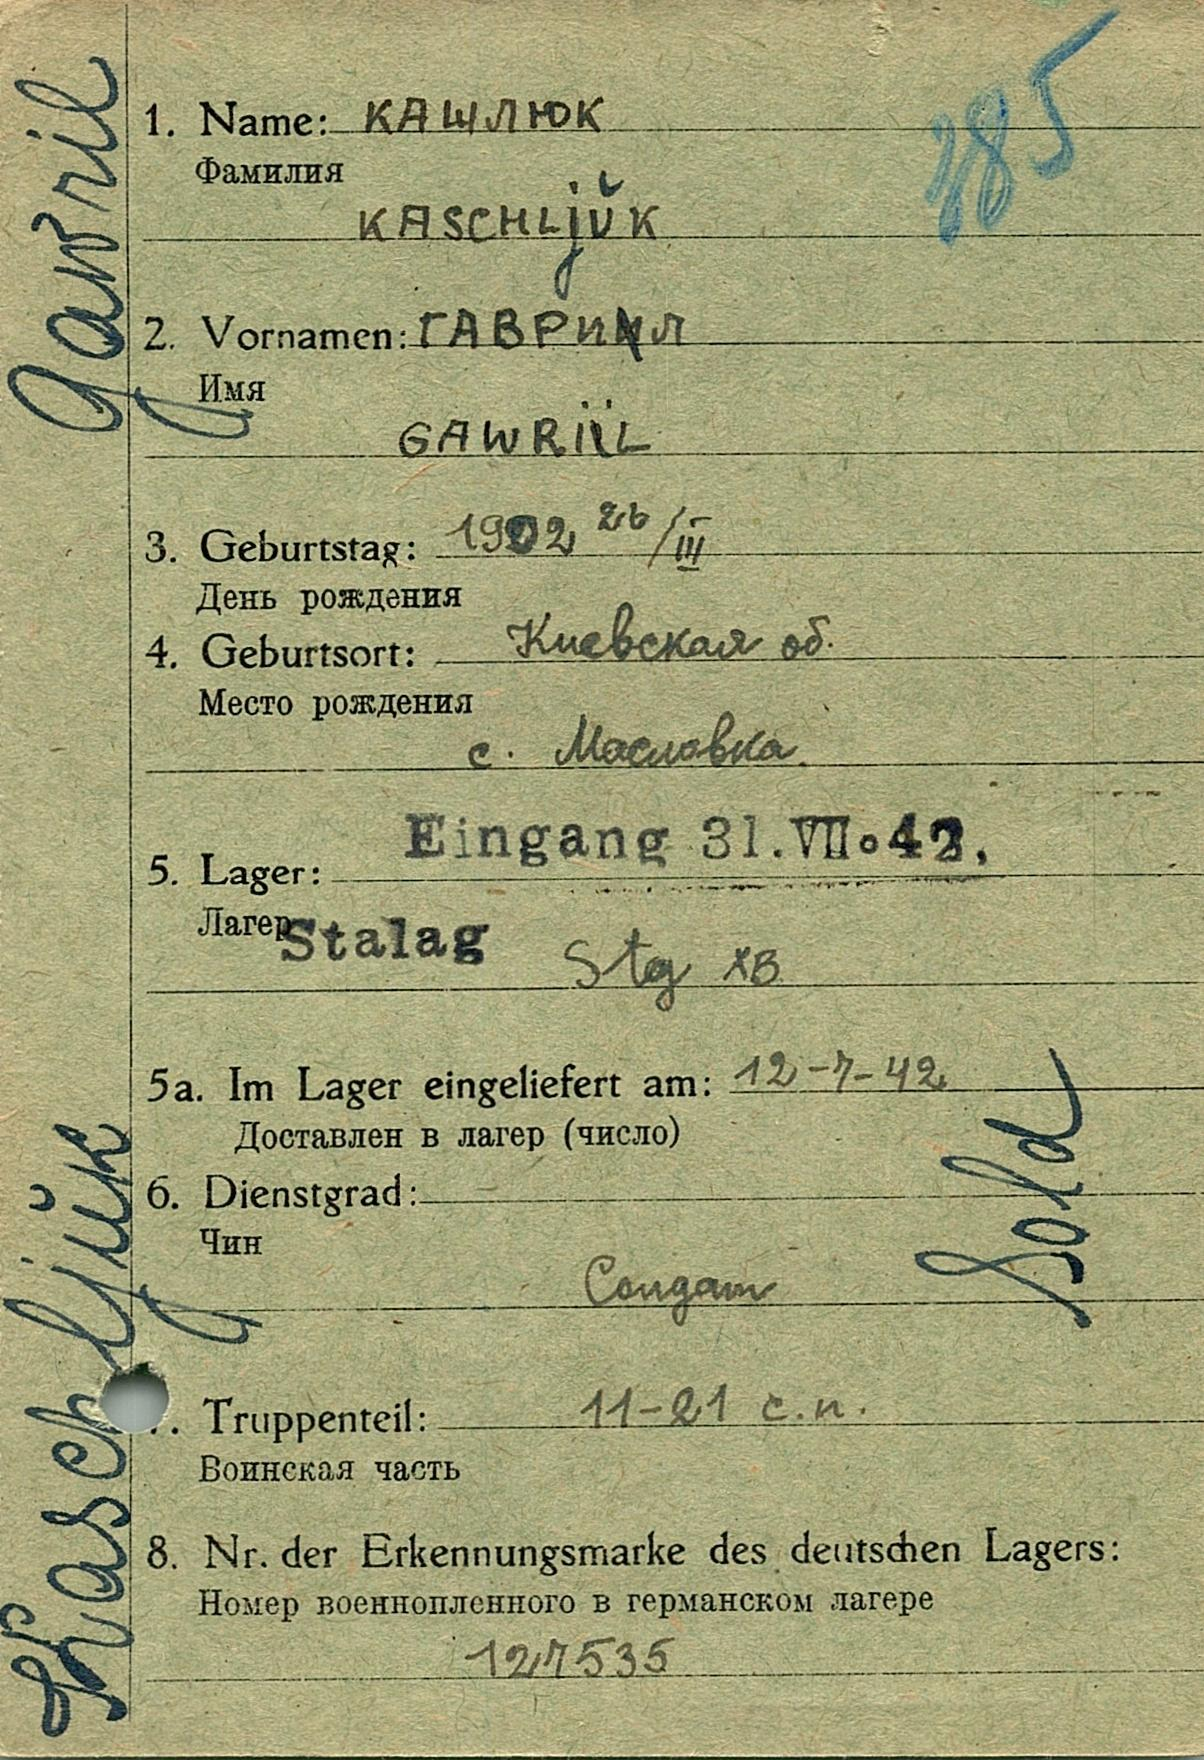 385
1. Name: КАШЛЮК
Фамилия
KASCHLJŬK
2. Vornamen: ГАВРИИЛ
Имя
GAWRIIL
3. Geburtstag: 1902 26/III
День рождения
4. Geburtsort: Киевская об.
Место рождения
с. Масловка.
Eingang 31.VII.42.
5. Lager:
Лагер
Stalag Stg XB
5a. Im Lager eingeliefert am: 12-7-42
Доставлен в лагер (число)
6. Dienstgrad:
Чин
Солдат
Sold
7. Truppenteil: 11-21 с.п.
Воинская часть
8. Nr. der Erkennungsmarke des deutschen Lagers:
Номер военнопленного в германском лагере
127535
Kaschljŭk Gawril